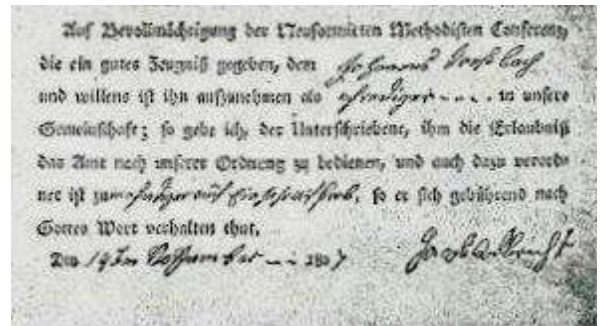 Auf Bevollmächtigung der Neuformirten Methodisten Conferenz,
die ein gutes Zeugniß gegeben, dem Johannes Dreisbach
und willens ist ihn aufzunehmen als Prediger - - - . in unsere
Gemeinschaft; so gebe ich, der Unterschriebene, ihm die Erlaubniß
das Amt nach unserer Ordnung zu bedienen, und auch dazu verord-
net ist zum Prediger auf, so er sich gebührend nach
Gottes Wort verhalten thut.
Den 1807 Jacob Albrecht